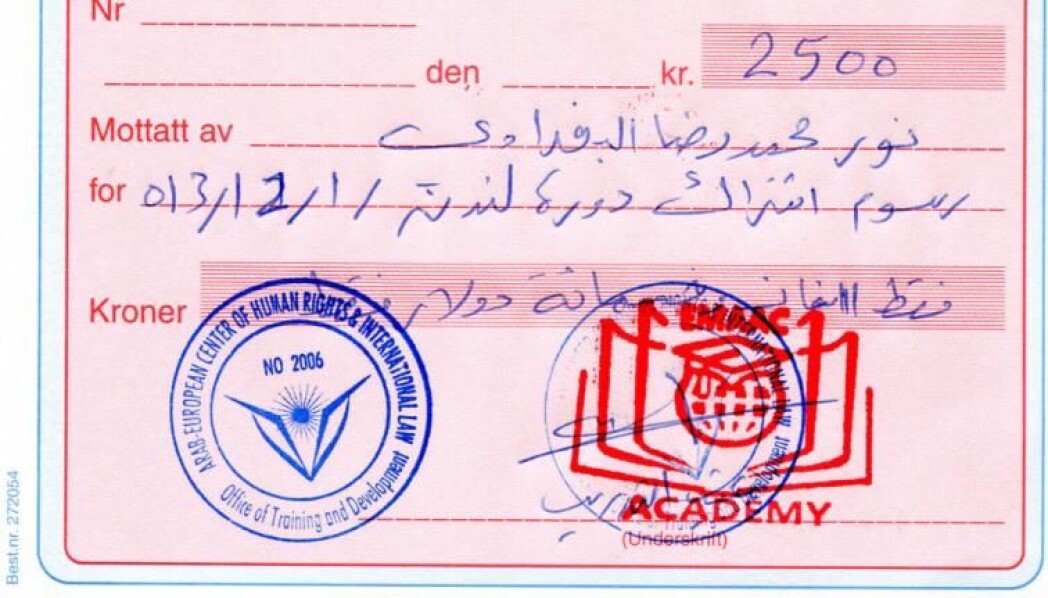 Nr
den kr. 2500
Mottatt av نور محمد رضا البغدادي
for رسوم اشتراك دورة لندن / 1 / 12 / 013
Kroner فقط الفان وخمسمائة دولار فقط
ARAB-EUROPEAN CENTER OF HUMAN RIGHTS & INTERNATIONAL LAW
NO 2006
Office of Training and Development
ACADEMY
(Underskrift)
Best.nr. 272054